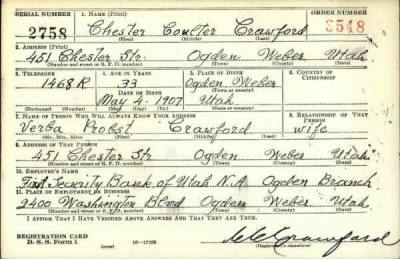 SERIAL NUMBER 1. NAME (Print) ORDER NUMBER
2758 Chester Coulter Crawford 3548
(First) (Middle) (Last)
2. ADDRESS (Print)
451 Chester Str. Ogden Weber Utah
(Number and street or R. F. D. number) (Town) (County) (State)
3. TELEPHONE 4. AGE IN YEARS 5. PLACE OF BIRTH 6. COUNTRY OF CITIZENSHIP
1468 R 33 Ogden, Weber
DATE OF BIRTH (Town or county)
May 4 - 1907 Utah
(Exchange) (Number) (Mo.) (Day) (Yr.) (State or country)
7. NAME OF PERSON WHO WILL ALWAYS KNOW YOUR ADDRESS 8. RELATIONSHIP OF THAT PERSON
Verba Probst Crawford wife
(Mr., Mrs., Miss) (First) (Middle) (Last)
9. ADDRESS OF THAT PERSON
451 Chester Str. Ogden Weber Utah
(Number and street or R. F. D. number) (Town) (County) (State)
10. EMPLOYER'S NAME
First Security Bank of Utah N.A. Ogden Branch
11. PLACE OF EMPLOYMENT OR BUSINESS
2400 Washington Blvd Ogden Weber Utah
(Number and street or R. F. D. number) (Town) (County) (State)
I AFFIRM THAT I HAVE VERIFIED ABOVE ANSWERS AND THAT THEY ARE TRUE.
REGISTRATION CARD
D. S. S. Form 1 16-17105 C C Crawford
(Registrant's signature)